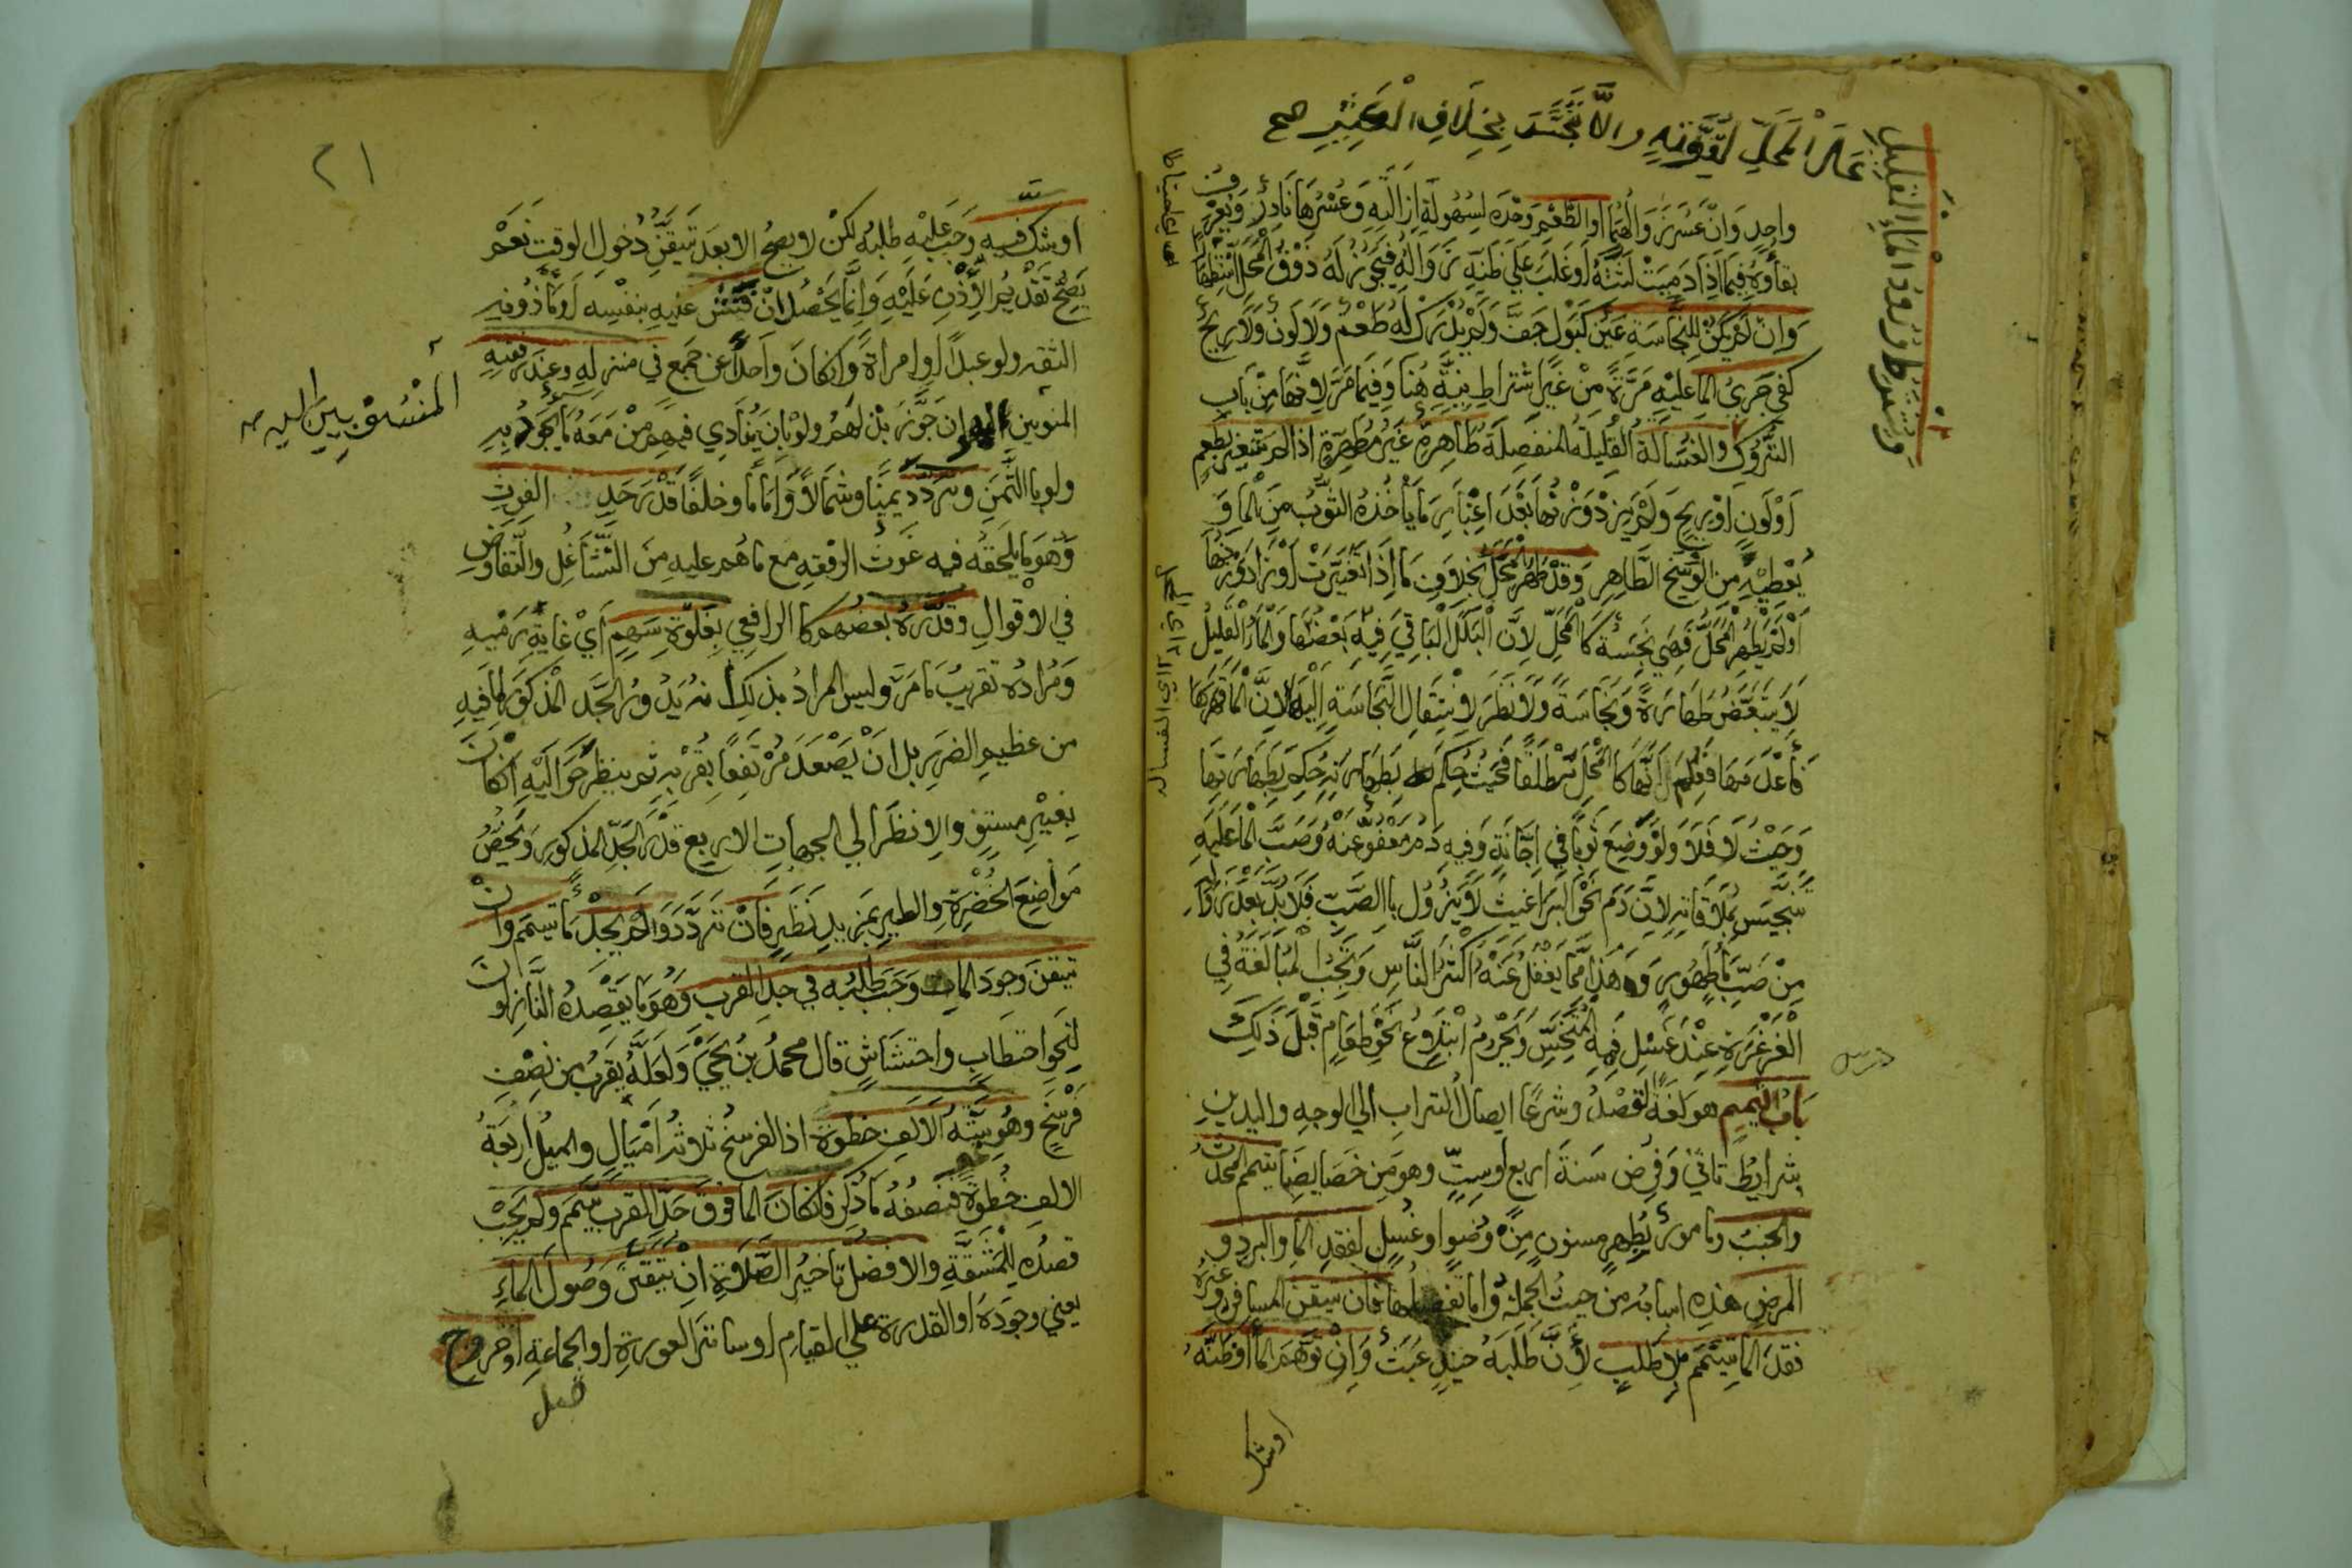 وشرط ورود الماء القليل
على المحل لقوته والا تنجس بخلاف الكثير صح
واحد وان عسر زوالهما او الطعم وحده لسهولة ازالته وعسرها نادر ويعرف
بقاؤه فيما اذا دميت لثته او غلب على ظنه زواله فيجوز له ذوق المحل استظهارا
وان لم يكن للنجاسة عين كبول جف ولم يدرك له طعم ولا لون ولا ريح
كفى جري الما عليه مرة من غير اشتراط نية هنا وفيما مر لانها من باب
التروك والغسالة القليلة المنفصلة طاهرة غير مطهرة اذا لم تتغير بطعم
او لون او ريح ولم يزد وزنها بعد اعتبار ما ياخذه الثوب من الما و
يعطيه من الوسخ الطاهر وقد طهر المحل بخلاف ما اذا تغيرت او زاد وزنها
او لم يطهر المحل فهي نجسة كالمحل لان البلل الباقي فيه بعضها والما القليل
لا يتبعض طهارة ونجاسة ولا نظر لانتقال النجاسة اليها لان الما قهرها
فاعدمها فعلم انها كالمحل مطلقا فحيث حكم بطهارته حكم بطهارتها
وحيث لا فلا ولو وضع ثوبا في اجانة وفيه دم معفو عنه وصب الما عليه
تنجس بملاقاته لان دم نحو البراغيث لا يزول بالصب فلا بد بعد زواله
من صب ما طهور وهذا مما يغفل عنه اكثر الناس وتجب المبالغة في
الغرغرة عند غسل فمه المتنجس ويحرم ابتلاع نحو طعام قبل ذلك
درس
باب التيمم هو لغة القصد وشرعا ايصال التراب الى الوجه واليدين
بشرايط تاتي وفرض سنة اربع او ست وهو من خصايصنا يتيمم المحدث
والجنب ومامور بطهر مسنون من وضوا وغسل لفقد الما والبرد و
المرض هذه اسبابه من حيث الجملة واما تفصيلها فان تيقن المسافر وغيره
فقد الما تيمم بلا طلب لان طلبه حينيذ عبث وان توهم الما او ظنه
او شك
٢١
او شك فيه وجب عليه طلبه لكن لا يصح الا بعد تيقن دخول الوقت نعم
يصح تقديم الاذن عليه وانما يحصل ان فتش عليه بنفسه او ماذونيه
الثقه ولو عبدا او امراة وان كان واحدا عن جمع في منزله وعند رفقته
المنسوبين اليه صح
المنوبين اليه ان جوز بذلهم ولو بان ينادي فيهم من معه ما يجود به
ولو بالثمن وتردد يمينا وشمالا واماما وخلفا قدر حد الغوث
وهو ما يلحقه فيه غوث الرفقه مع ما هم عليه من التشاغل والتفاوض
في الاقوال وقدره بعضهم كالرافعي بغلوة سهم اي غاية رميه
ومراده تقريب ما مر وليس المراد بذلك انه يدور الحد المذكور لما فيه
من عظيم الضرر بل ان يصعد مرتفعا بقربه ثم ينظر حواليه ان كان
بغير مستو والا نظر الى الجهات الاربع قدر الحد المذكور ويخص
مواضع الخضرة والطير بمزيد نظر فان تردد ولم يجد ما تيمم وان
تيقن وجود الما وجب طلبه في حد القرب وهو ما يقصده النازلون
لنحو احتطاب واحتشاش قال محمد بن يحيى ولعله يقرب من نصف
فرسخ وهو ستة الاف خطوة اذ الفرسخ ثلاثة اميال والميل اربعة
الاف خطوة فنصفه ما ذكر فان كان الما فوق حد القرب تيمم ولم يجب
قصده للمشقة والافضل تاخير الصلاة ان تيقن وصول الماء
يعني وجوده او القدرة على القيام او ساتر العورة او الجماعة او خروج